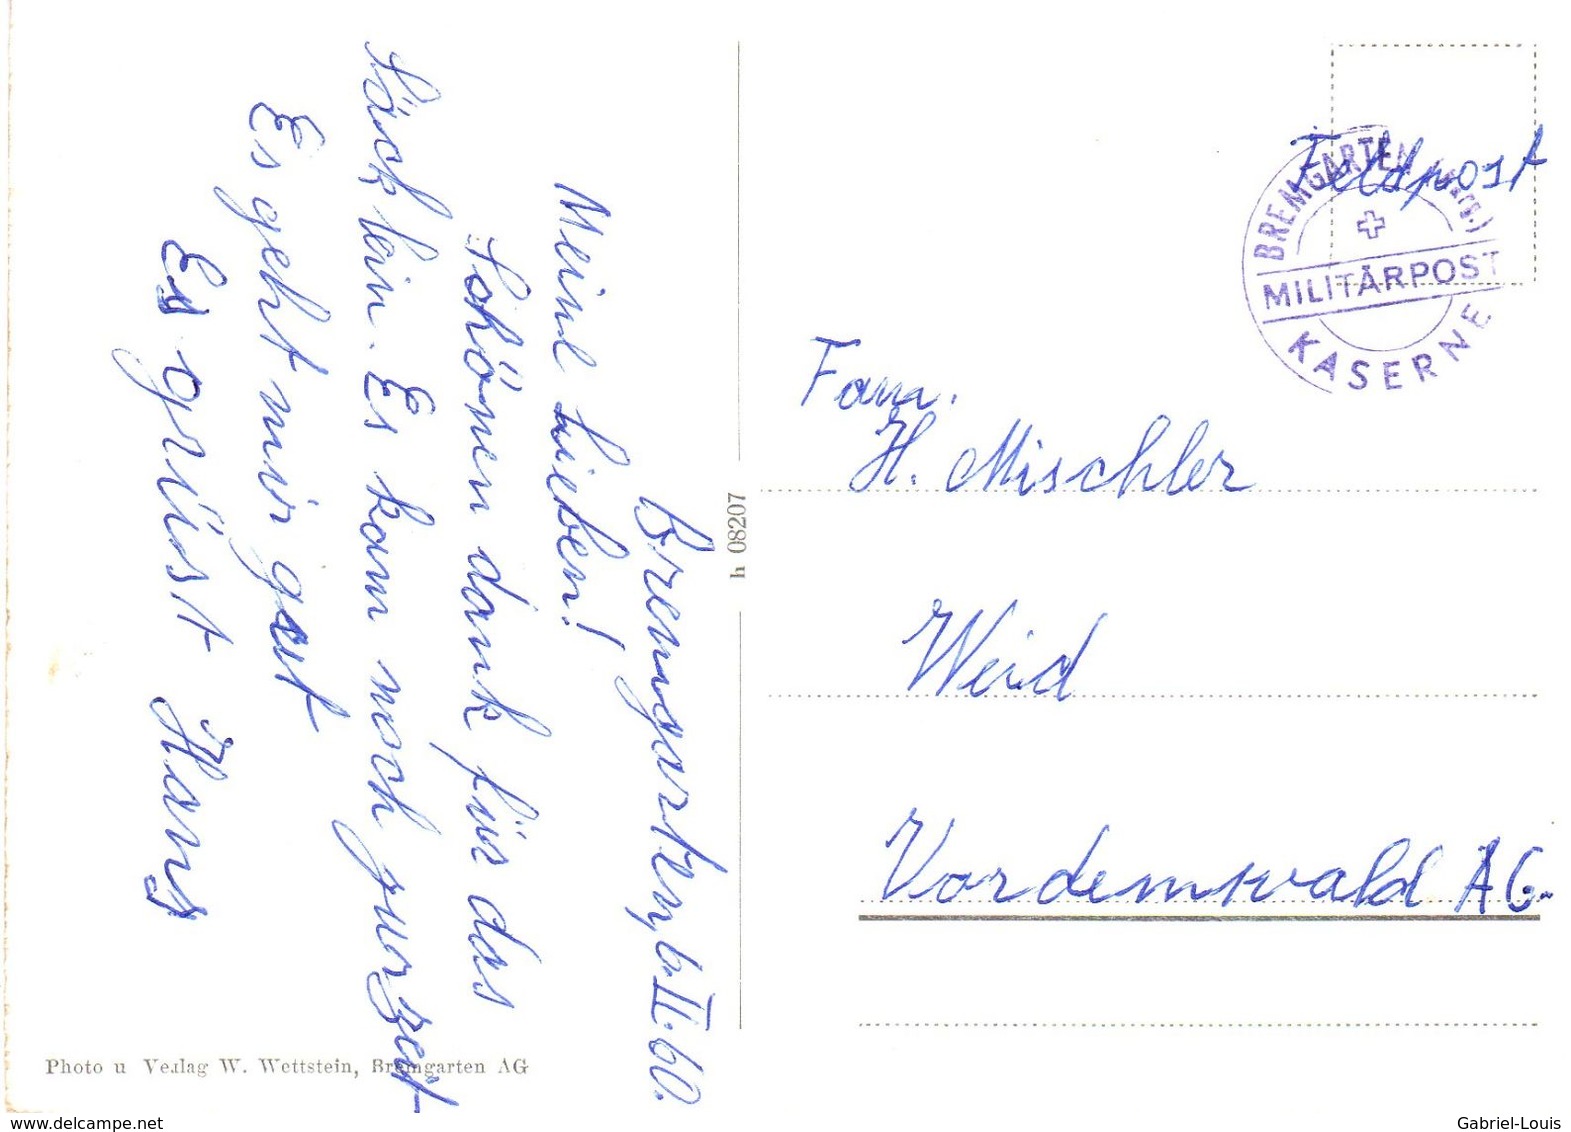 Bremgarten, 6.II.60.
Meine Lieben!
Schönen dank für das
Säcklein. Es kam noch zurzeit
Es geht mir gut
Es grüsst Hans
h 08207
Photo u Verlag W. Wettstein, Bremgarten AG
Feldpost
BREMGARTEN (Aarg.)
MILITÄRPOST
KASERNE
Fam.
H. Mischler
Weid
Vordemwald AG.
www.delcampe.net
Gabriel-Louis